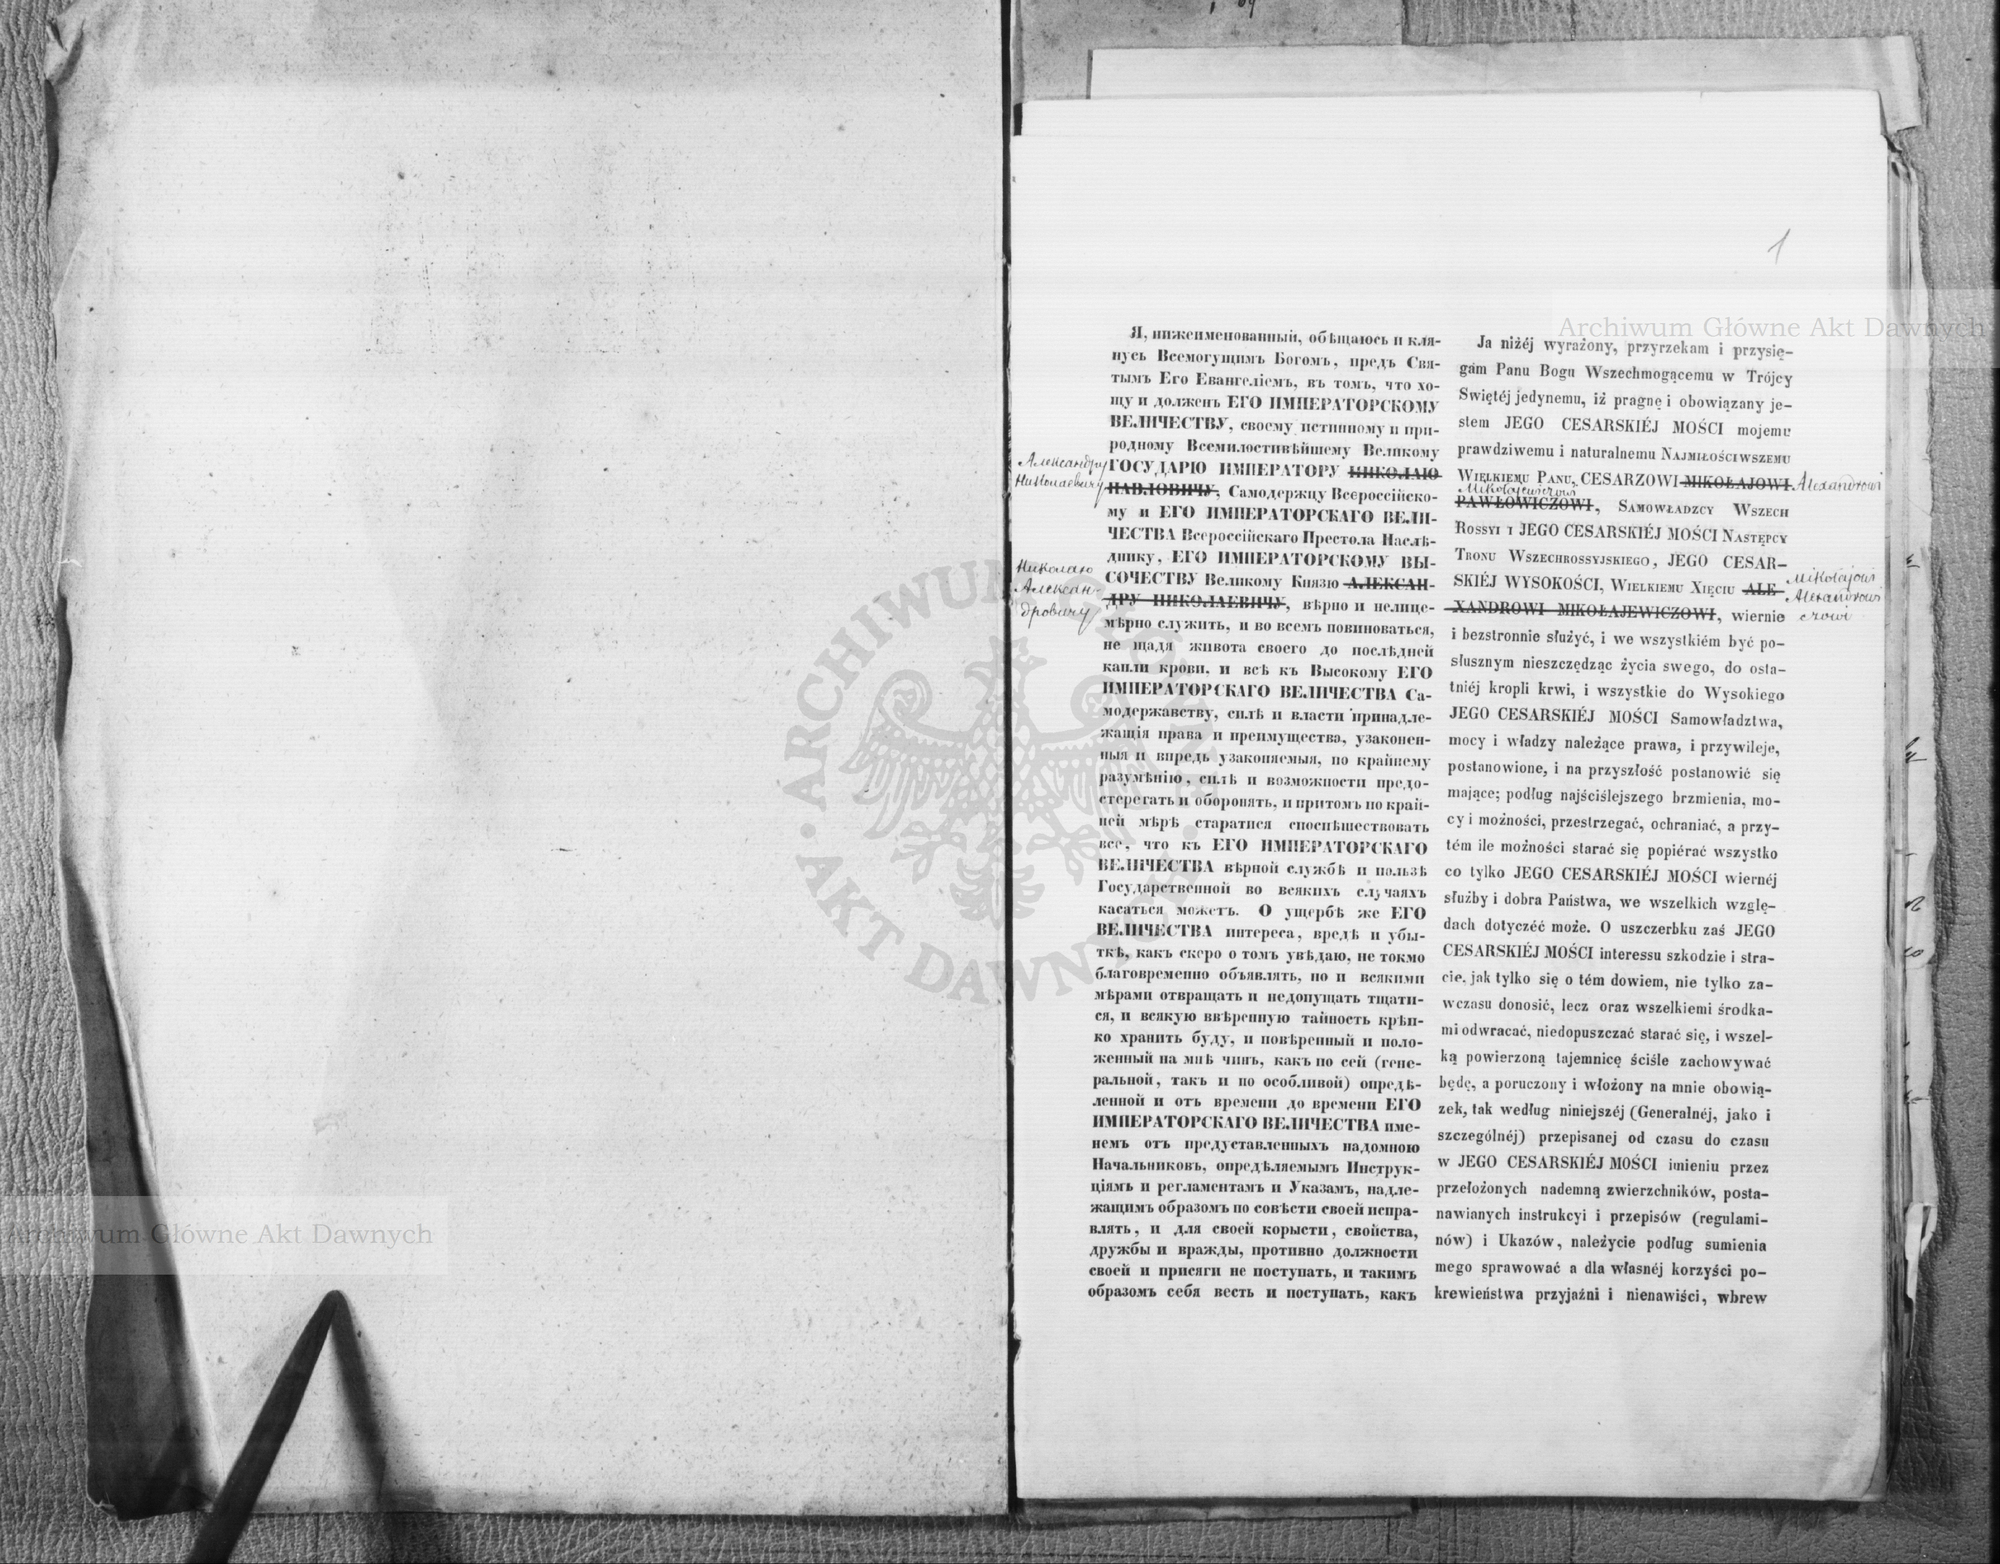 1
Я, нижеименованный, обѣщаюсь и кля-
нусь Всемогущимъ Богомъ, предъ Свя-
тымъ Его Евангеліемъ, въ томъ, что хо-
щу и долженъ ЕГО ИМПЕРАТОРСКОМУ
ВЕЛИЧЕСТВУ, своему истинному и при-
родному Всемилостивѣйшему Великому
ГОСУДАРЮ ИМПЕРАТОРУ НИКОЛАЮ
ПАВЛОВИЧУ, Самодержцу Всероссійско-
му и ЕГО ИМПЕРАТОРСКАГО ВЕЛИ-
ЧЕСТВА Всероссійскаго Престола Наслѣ-
днику, ЕГО ИМПЕРАТОРСКОМУ ВЫ-
СОЧЕСТВУ Великому Князю АЛЕКСАН-
ДРУ НИКОЛАЕВИЧУ, вѣрно и нелице-
мѣрно служить, и во всемъ повиноваться,
не щадя живота своего до послѣдней
капли крови, и всѣ къ Высокому ЕГО
ИМПЕРАТОРСКАГО ВЕЛИЧЕСТВА Са-
модержавству, силѣ и власти принадле-
жащія права и преимущества, узаконен-
ныя и впредь узаконяемыя, по крайнему
разумѣнію, силѣ и возможности предо-
стерегать и оборонять, и притомъ по край-
ней мѣрѣ старатися споспѣшествовать
все, что къ ЕГО ИМПЕРАТОРСКАГО
ВЕЛИЧЕСТВА вѣрной службѣ и пользѣ
Государственной во всякихъ случаяхъ
касаться можетъ. О ущербѣ же ЕГО
ВЕЛИЧЕСТВА интереса, вредѣ и убы-
ткѣ, какъ скоро о томъ увѣдаю, не токмо
благовременно объявлять, но и всякими
мѣрами отвращать и недопущать тщати-
ся, и всякую ввѣренную тайность крѣп-
ко хранить буду, и повѣренный и поло-
женный на мнѣ чинъ, какъ по сей (гене-
ральной, такъ и по особливой) опредѣ-
ленной и отъ времени до времени ЕГО
ИМПЕРАТОРСКАГО ВЕЛИЧЕСТВА име-
немъ отъ предуставленныхъ надомною
Начальниковъ, опредѣляемымъ Инструк-
ціямъ и регламентамъ и Указамъ, надле-
жащимъ образомъ по совѣсти своей испра-
влять, и для своей корысти, свойства,
дружбы и вражды, противно должности
своей и присяги не поступать, и такимъ
образомъ себя весть и поступать, какъ
Александру
Николаевичу
Николаю
Алексан-
дровичу
Ja niżéj wyrażony, przyrzekam i przysię-
gam Panu Bogu Wszechmogącemu w Trójcy
Swiętéj jedynemu, iż pragnę i obowiązany je-
stem JEGO CESARSKIÉJ MOŚCI mojemu
prawdziwemu i naturalnemu Najmiłościwszemu
Wielkiemu Panu, CESARZOWI MIKOŁAJOWI Alexandrowi
Mikołajewiczowi
PAWŁOWICZOWI, Samowładzcy Wszech
Rossyi i JEGO CESARSKIÉJ MOŚCI Następcy
Tronu Wszechrossyjskiego, JEGO CESAR-
SKIÉJ WYSOKOŚCI, Wielkiemu Xięciu ALE-
XANDROWI MIKOŁAJEWICZOWI, wiernie
i bezstronnie służyć, i we wszystkiém być po-
słusznym nieszczędząc życia swego, do osta-
tniéj kropli krwi, i wszystkie do Wysokiego
JEGO CESARSKIÉJ MOŚCI Samowładztwa,
mocy i władzy należące prawa, i przywileje,
postanowione, i na przyszłość postanowić się
mające; podług najściślejszego brzmienia, mo-
cy i możności, przestrzegać, ochraniać, a przy-
tém ile możności starać się popiérać wszystko
co tylko JEGO CESARSKIÉJ MOŚCI wiernéj
służby i dobra Państwa, we wszelkich wzglę-
dach dotyczéć może. O uszczerbku zaś JEGO
CESARSKIÉJ MOŚCI interessu szkodzie i stra-
cie, jak tylko się o tém dowiem, nie tylko za-
wczasu donosić, lecz oraz wszelkiemi środka-
mi odwracać, niedopuszczać starać się, i wszel-
ką powierzoną tajemnicę ściśle zachowywać
będę, a poruczony i włożony na mnie obowią-
zek, tak według niniejszéj (Generalnéj, jako i
szczególnéj) przepisanej od czasu do czasu
w JEGO CESARSKIÉJ MOŚCI imieniu przez
przełożonych nademną zwierzchników, posta-
nawianych instrukcyi i przepisów (regulami-
nów) i Ukazów, należycie podług sumienia
mego sprawować a dla własnéj korzyści po-
krewieństwa przyjaźni i nienawiści, wbrew
Mikołajowi
Alexandrowi
czowi
Archiwum Główne Akt Dawnych
Archiwum Główne Akt Dawnych
ARCHIWUM GŁÓWNE AKT DAWNYCH